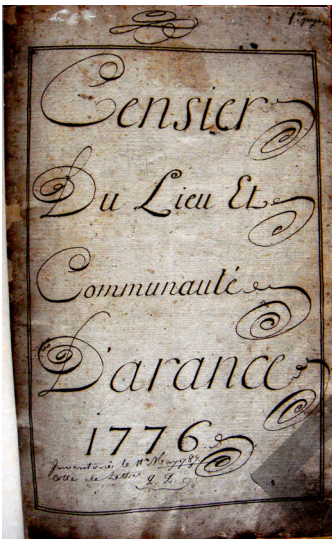 1.ere page
Censier
Du Lieu Et
Communauté
D'arance
1776
Inventorié le 11 May 1789
Cotté de Lettre